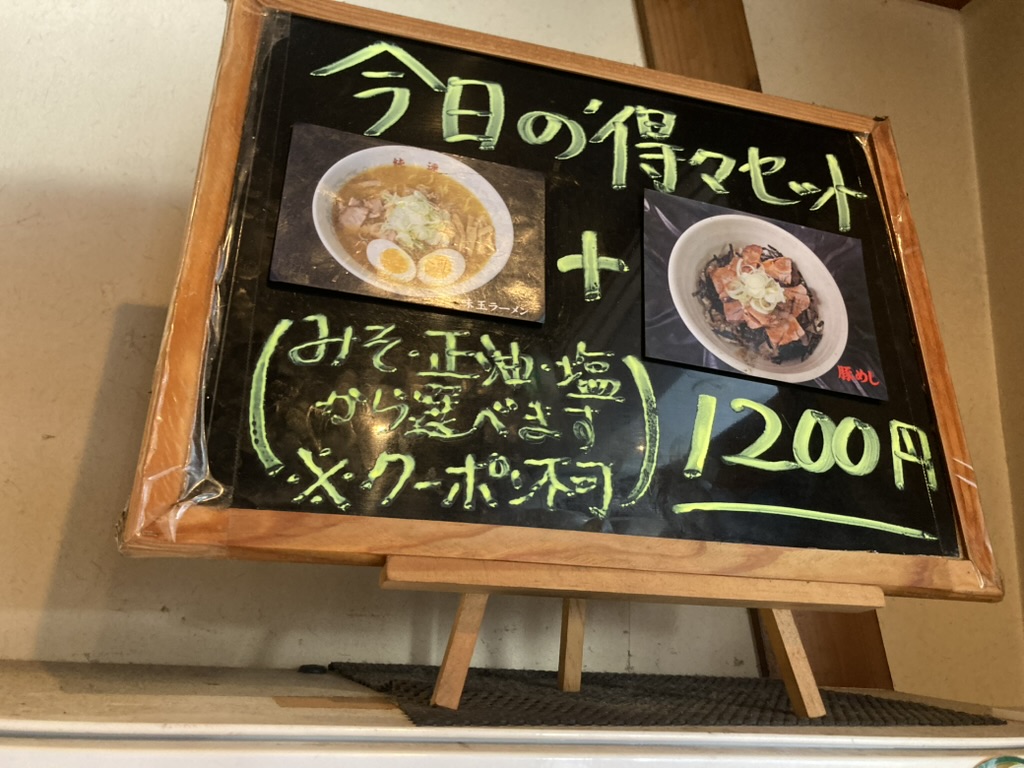 今日の得々セット
味玉ラーメン
+
豚めし
(みそ・正油・塩
から選べます
※クーポン不可)
1200円